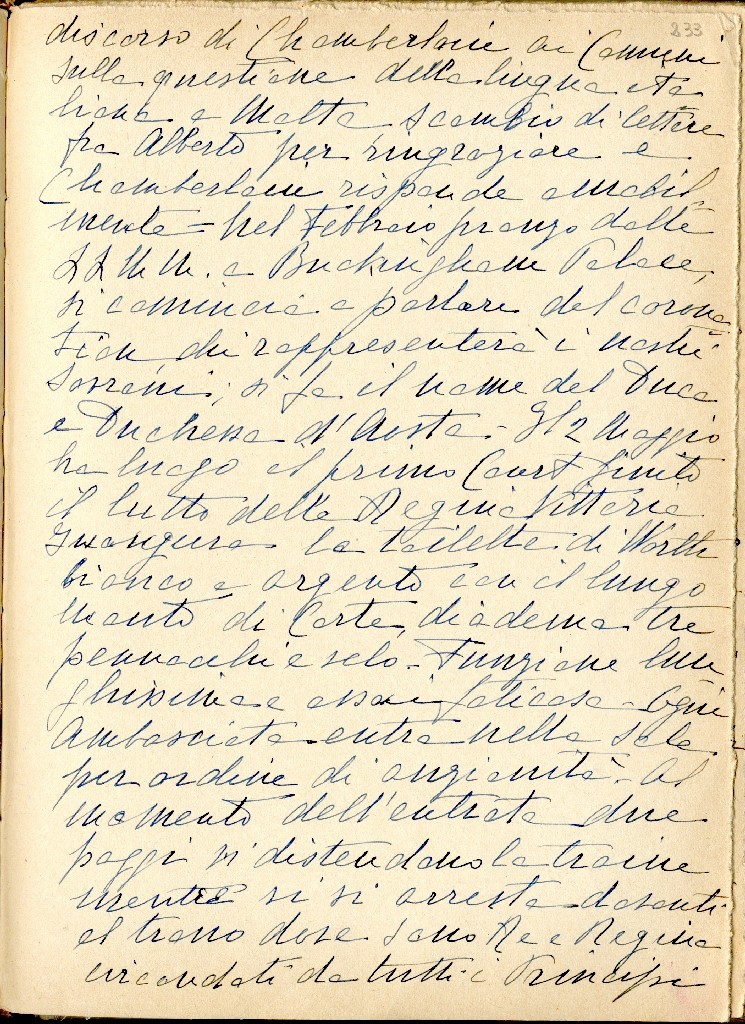 233
discorso di Chamberlain ai Comuni
sulla questione della lingua ita
liana a Malta, scambio di lettere
fra Alberto per ringraziare e
Chamberlain risponde amabil
mente = Nel Febbraio pranzo dalle
LL MM. a Buckingham Palace,
si comincia a parlare del corona
tion, chi rappresenterà i nostri
Sovrani; si fa il nome del Duca
e Duchessa d'Aosta - Il 2 Maggio
ha luogo il primo Court finito
il lutto della Regina Vittoria
Inauguro la toilette di Worth
bianco e argento con il lungo
manto di Corte, diadema tre
pennacchi e velo - Funzione lun
ghissima e assai faticosa - Ogni
Ambasciata entra nella sala
per ordine di anzianità - Al
momento dell'entrata due
paggi vi distendono la traine
mentre si si arresta davanti
al trono dove sono Re e Regina
circondati da tutti i Principi